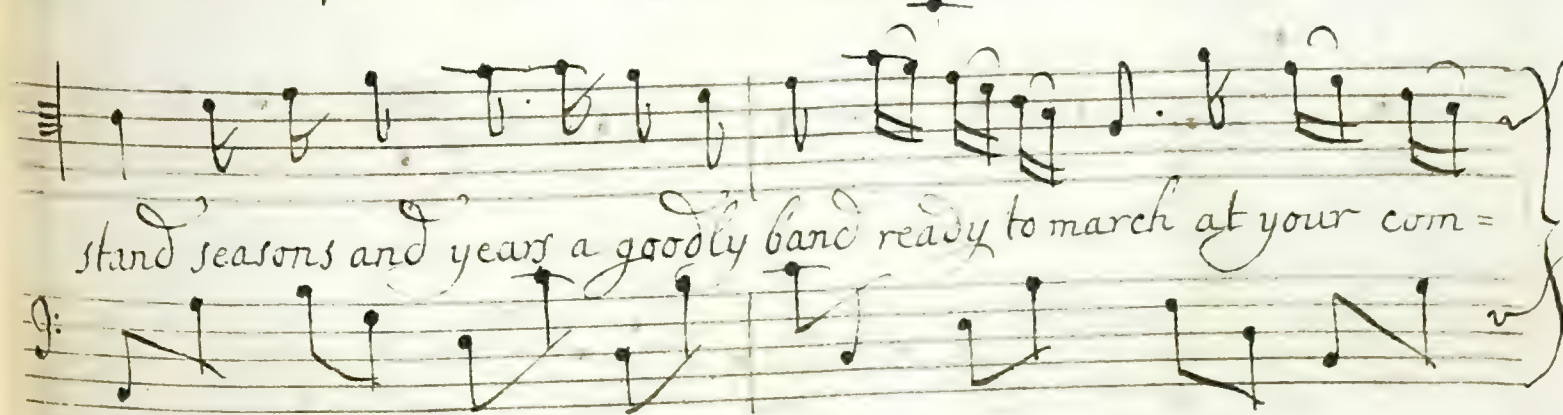 stand seasons and years a goodly band ready to march at your com=